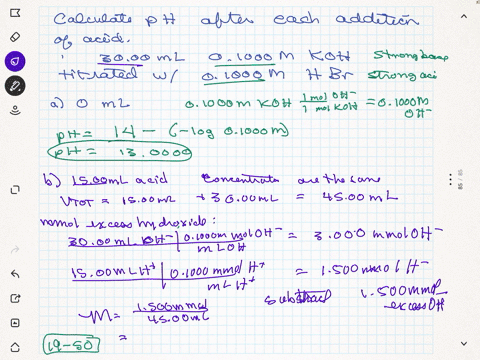 Calculate pH after each addition
of acid.
30.00 mL 0.1000 M KOH Strong base
titrated w/ 0.1000 M HBr strong aci
a) 0 mL 0.1000 M KOH 1 mol OH⁻ / 1 mol KOH = 0.1000 M OH⁻
pH = 14 - (-log 0.1000 m)
pH = 13.0000
b) 15.00 mL acid Concentrate are the same
VTOT = 15.00 mL + 30.00 mL = 45.00 mL
mmol excess hydroxide:
30.00 mL OH⁻ | 0.1000 mmol OH⁻ / mL OH = 3.000 mmol OH⁻
15.00 mL H⁺ | 0.1000 mmol H⁺ / mL H⁺ = 1.500 mmol H⁻
M = 1.500 mmol / 45.00 mL subtract 1.500 mmol excess OH
19-50 =